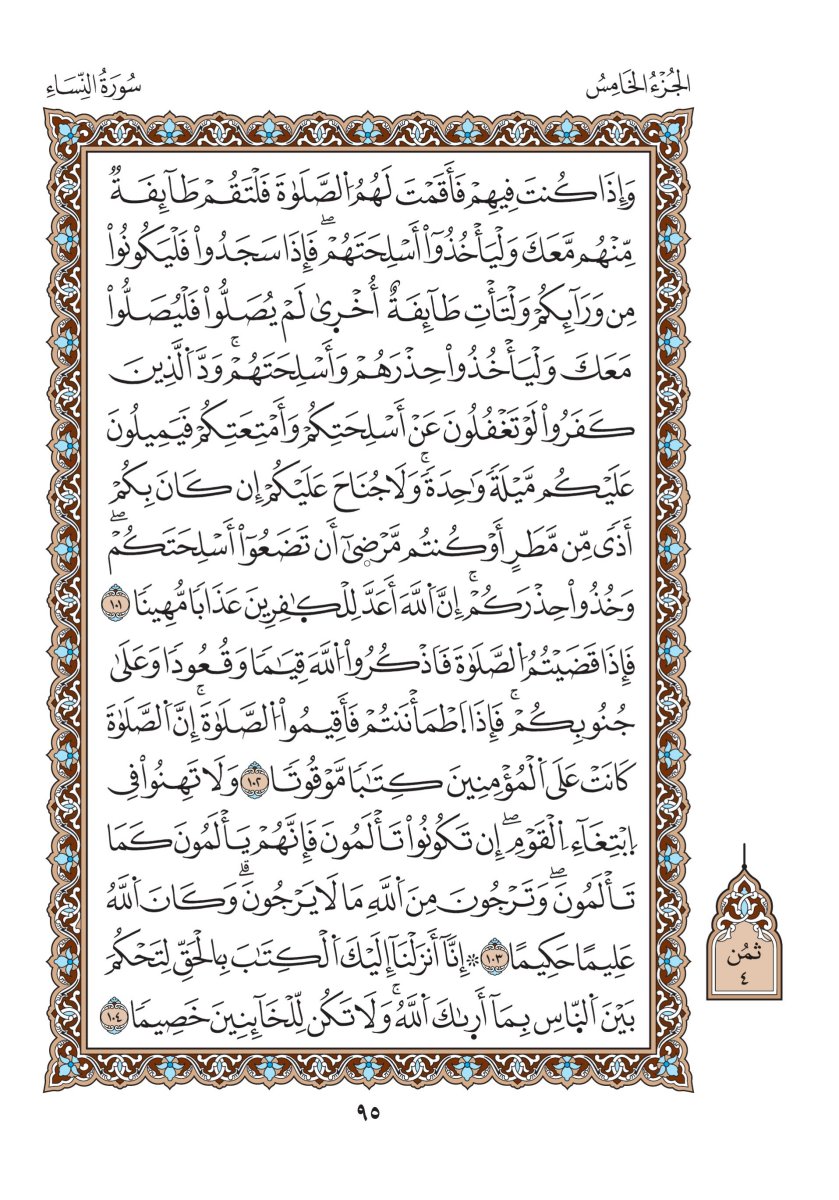 الجُزْءُ الخَامِسُ
سُورَةُ النِّسَاءِ
وَإِذَا كُنتَ فِيهِمْ فَأَقَمْتَ لَهُمُ اُ۬لصَّلَوٰةَ فَلْتَقُمْ طَآئِفَةٞ
مِّنْهُم مَّعَكَ وَلْيَأْخُذُوٓاْ أَسْلِحَتَهُمْۖ فَإِذَا سَجَدُواْ فَلْيَكُونُواْ
مِن وَرَآئِكُمْ وَلْتَأْتِ طَآئِفَةٌ أُخْرۭيٰ لَمْ يُصَلُّواْ فَلْيُصَلُّواْ
مَعَكَ وَلْيَأْخُذُواْ حِذْرَهُمْ وَأَسْلِحَتَهُمْۚ وَدَّ اَ۬لَّذِينَ
كَفَرُواْ لَوْ تَغْفُلُونَ عَنْ أَسْلِحَتِكُمْ وَأَمْتِعَتِكُمْ فَيَمِيلُونَ
عَلَيْكُم مَّيْلَةٗ وَٰحِدَةٗۚ وَلَا جُنَاحَ عَلَيْكُمْ إِن كَانَ بِكُمْ
أَذٗى مِّن مَّطَرٍ أَوْ كُنتُم مَّرْضۭيٰٓ أَن تَضَعُوٓاْ أَسْلِحَتَكُمْۖ
وَخُذُواْ حِذْرَكُمْۚ إِنَّ اَ۬للَّهَ أَعَدَّ لِلْكٰٜفِرِينَ عَذَابٗا مُّهِينٗا ١٠١
فَإِذَا قَضَيْتُمُ اُ۬لصَّلَوٰةَ فَاذْكُرُواْ اُ۬للَّهَ قِيَٰمٗا وَقُعُودٗا وَعَلَىٰ
جُنُوبِكُمْۚ فَإِذَا اَ۪طْمَأْنَنتُمْ فَأَقِيمُواْ اُ۬لصَّلَوٰةَۚ إِنَّ اَ۬لصَّلَوٰةَ
كَانَتْ عَلَى اَ۬لْمُؤْمِنِينَ كِتَٰبٗا مَّوْقُوتٗا ١٠٢ وَلَا تَهِنُواْ فِي
اِ۪بْتِغَآءِ اِ۬لْقَوْمِۖ إِن تَكُونُواْ تَأْلَمُونَ فَإِنَّهُمْ يَأْلَمُونَ كَمَا
تَأْلَمُونَۖ وَتَرْجُونَ مِنَ اَ۬للَّهِ مَا لَا يَرْجُونَۗ وَكَانَ اَ۬للَّهُ
عَلِيمًا حَكِيمًا ١٠٣ ۞ إِنَّآ أَنزَلْنَآ إِلَيْكَ اَ۬لْكِتَٰبَ بِالْحَقِّ لِتَحْكُمَ
بَيْنَ اَ۬لنَّاسِ بِمَآ أَرۭىٰكَ اَ۬للَّهُۚ وَلَا تَكُن لِّلْخَآئِنِينَ خَصِيمٗا ١٠٤
ثمُن
٤
٩٥